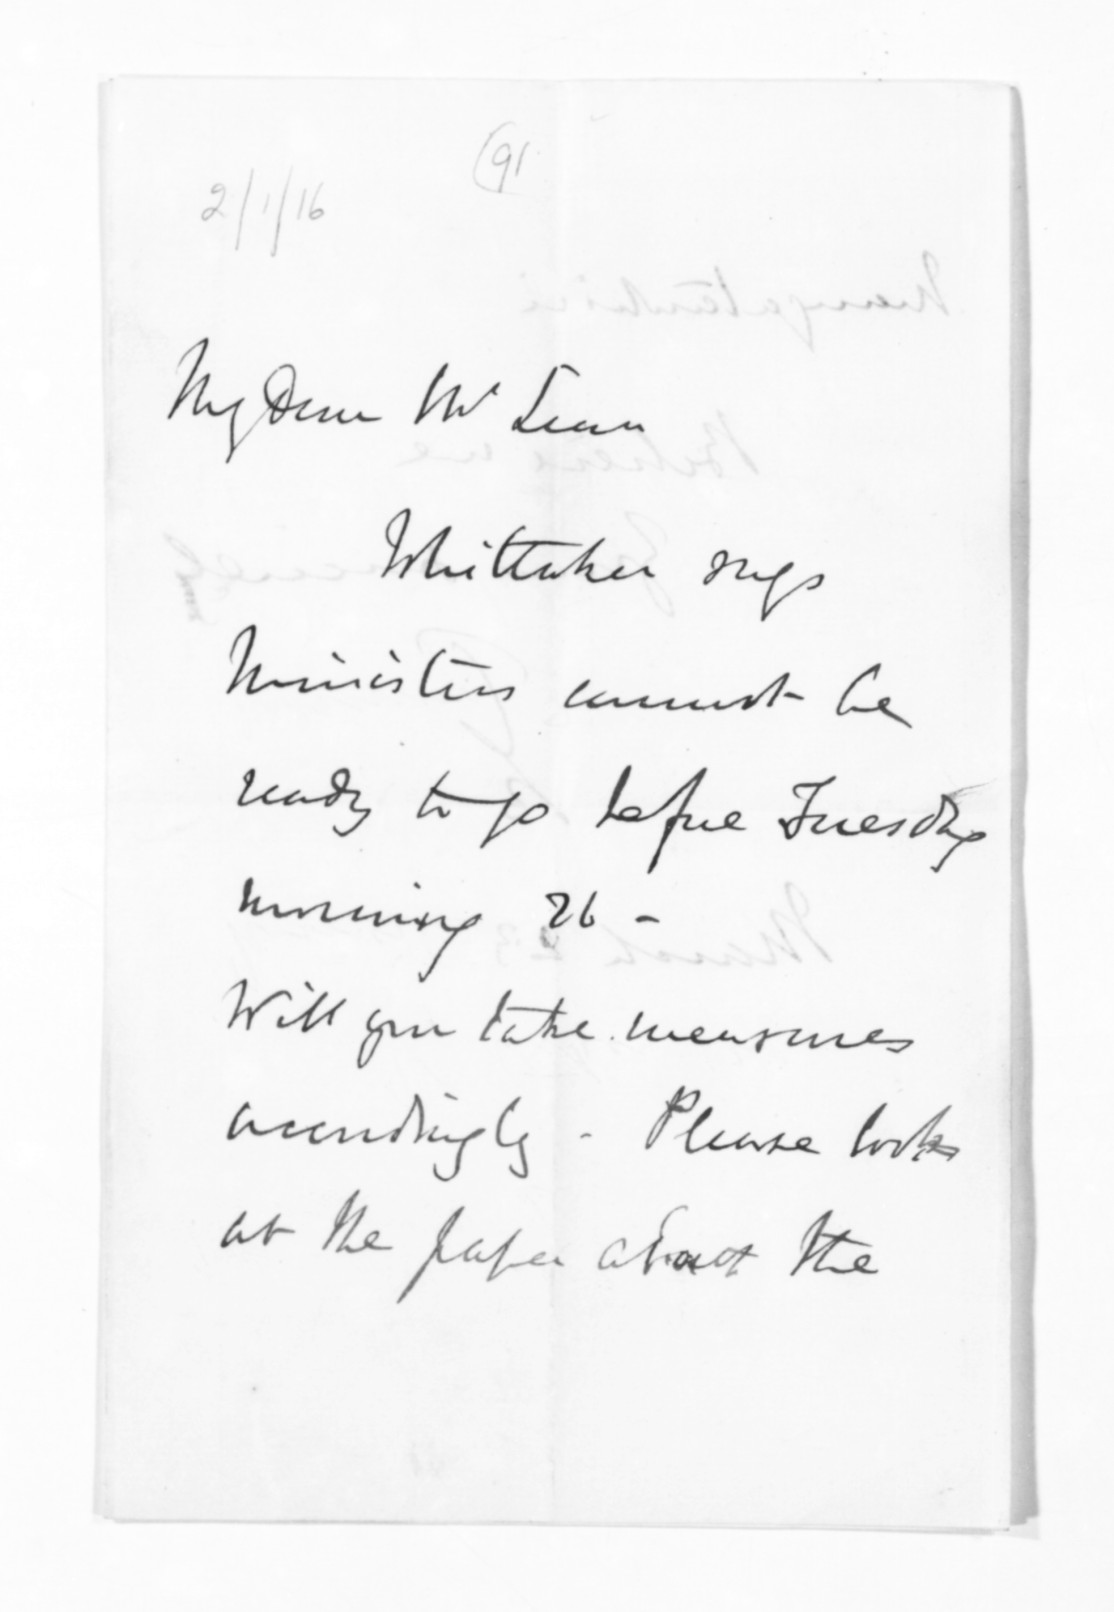 91
2/1/16
My Dear Mr Lean
Whittaker says
Ministers cannot be
ready to go before Tuesday
morning 26 -
Will you take measures
accordingly - Please look
at the paper about the